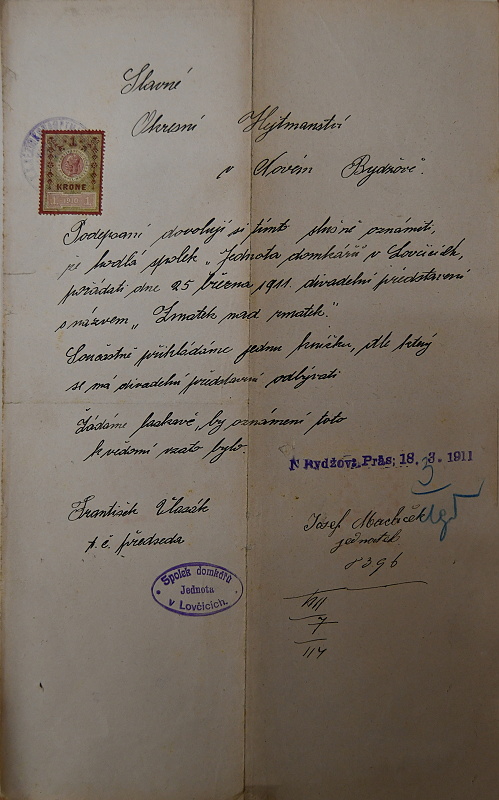 Slavné
Okresní Hejtmanství
v Novém Bydžově.
1
KRONE
1 1910 1
Podepsaní dovolují si tímto slušně oznámiti,
že hodlá spolek „Jednota domkářů" v Lovčicích,
pořádati dne 25 března 1911. divadelní představení
s názvem „Zmatek nad zmatek".
Současně přikládáme jednu knížku, dle které
se má divadelní představení odbývati
Žádáme laskavě, by oznámení toto
k vědomí vzato bylo.
N Bydžov, Präs; 18. 3. 1911
František Vlasák
t. č. předseda
Spolek domkářů
Jednota
v Lovčicích.
Josef
jednatel
8396
1911
7
114